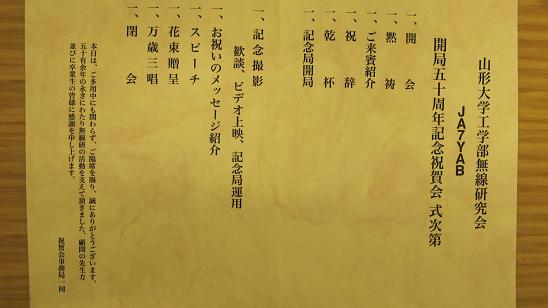 山形大学工学部無線研究会
JA7YAB
開局五十周年記念祝賀会 式次第
一、開 会
一、黙 祷
一、ご来賓紹介
一、祝 辞
一、乾 杯
一、記念局開局
歓談、ビデオ上映、記念局運用
一、記念撮影
一、お祝いのメッセージ紹介
一、スピーチ
一、花束贈呈
一、万歳三唱
一、閉 会
本日は、ご多用中にも関わらず、ご臨席を賜り、誠にありがとうございます。
五十有余年の永きにわたり無線研の活動を支えて頂きました、顧問の先生方
並びに卒業生の皆様に感謝を申し上げます。
祝賀会事務局一同